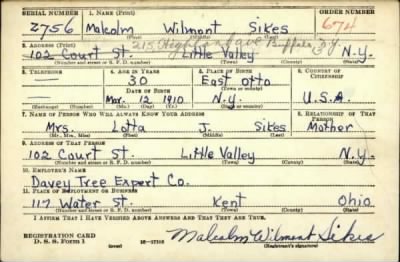 SERIAL NUMBER 1. NAME (Print) ORDER NUMBER
2756 Malcolm Wilmont Sikes 674
(First) (Middle) (Last)
215 Ave Buffalo NY
2. ADDRESS (Print)
102 Court St. Little Valley N.Y.
(Number and street or R. F. D. number) (Town) (County) (State)
3. TELEPHONE 4. AGE IN YEARS 5. PLACE OF BIRTH 6. COUNTRY OF CITIZENSHIP
30 East Otto
DATE OF BIRTH (Town or county)
Mar. 12 1910 N.Y. U.S.A.
(Exchange) (Number) (Mo.) (Day) (Yr.) (State or country)
7. NAME OF PERSON WHO WILL ALWAYS KNOW YOUR ADDRESS 8. RELATIONSHIP OF THAT PERSON
Mrs. Lotta J. Sikes Mother
(Mr., Mrs., Miss) (First) (Middle) (Last)
9. ADDRESS OF THAT PERSON
102 Court St. Little Valley N.Y.
(Number and street or R. F. D. number) (Town) (County) (State)
10. EMPLOYER'S NAME
Davey Tree Expert Co.
11. PLACE OF EMPLOYMENT OR BUSINESS
117 Water St. Kent Ohio
(Number and street or R. F. D. number) (Town) (County) (State)
I AFFIRM THAT I HAVE VERIFIED ABOVE ANSWERS AND THAT THEY ARE TRUE.
REGISTRATION CARD
D. S. S. Form 1 (over) 16—17105 Malcolm Wilmont Sikes
(Registrant's signature)